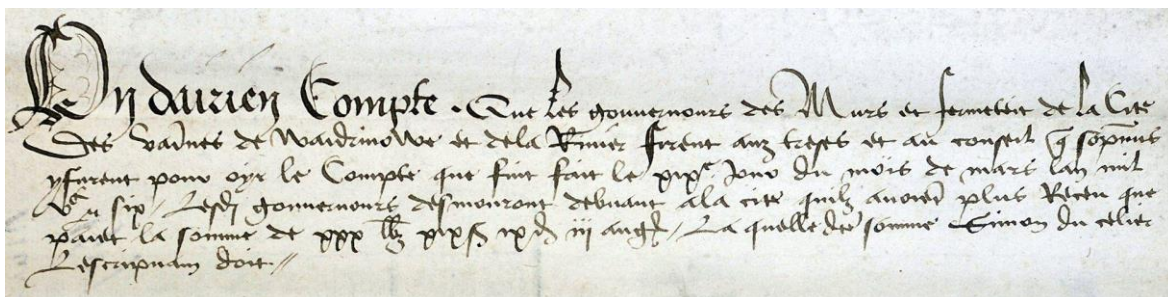 On darien Compte. Que les gouvernours des Murs et fermeteit de la Cite
des vannes de Waidrinowe et de la Rivier firent auz treses et au conseil q̄ comis
y furent pour oyr le Compte que fuit fait le xixe Jour du mois de mars lan mil
vc et six / Lesdˢ gouvernours desmouront debvant a la cite quilz avoient plus Receu que
paiet la somme de xxx lb xix s ix d iii ang / La quelle dee somme Simon du celier
Lescripvain doit //